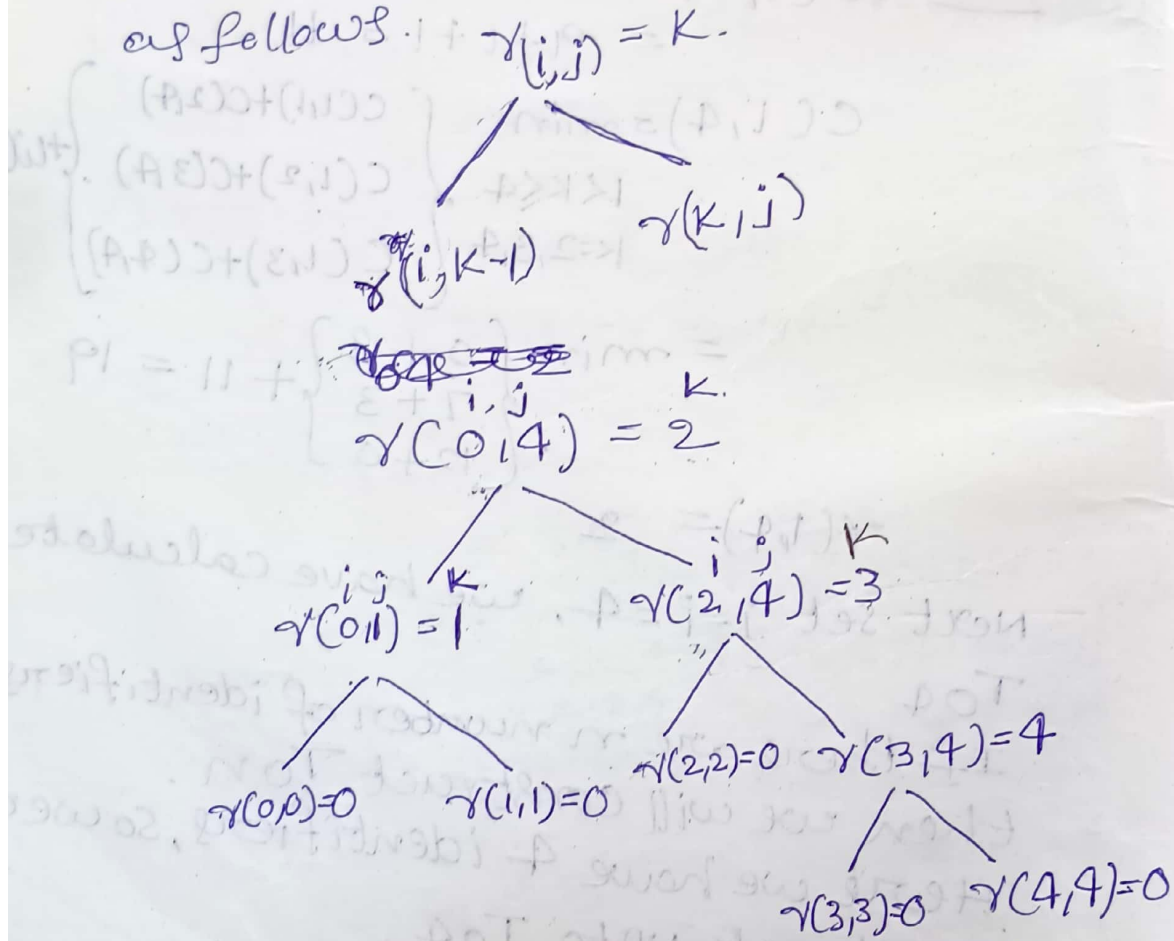 as follows. r(i,j) = K.
r(i,K-1) r(K,j)
i, j K.
r(0,4) = 2
i j K i j K
r(0,1) = 1 r(2,4) = 3
r(0,0)=0 r(1,1)=0 r(2,2)=0 r(3,4)=4
r(3,3)=0 r(4,4)=0